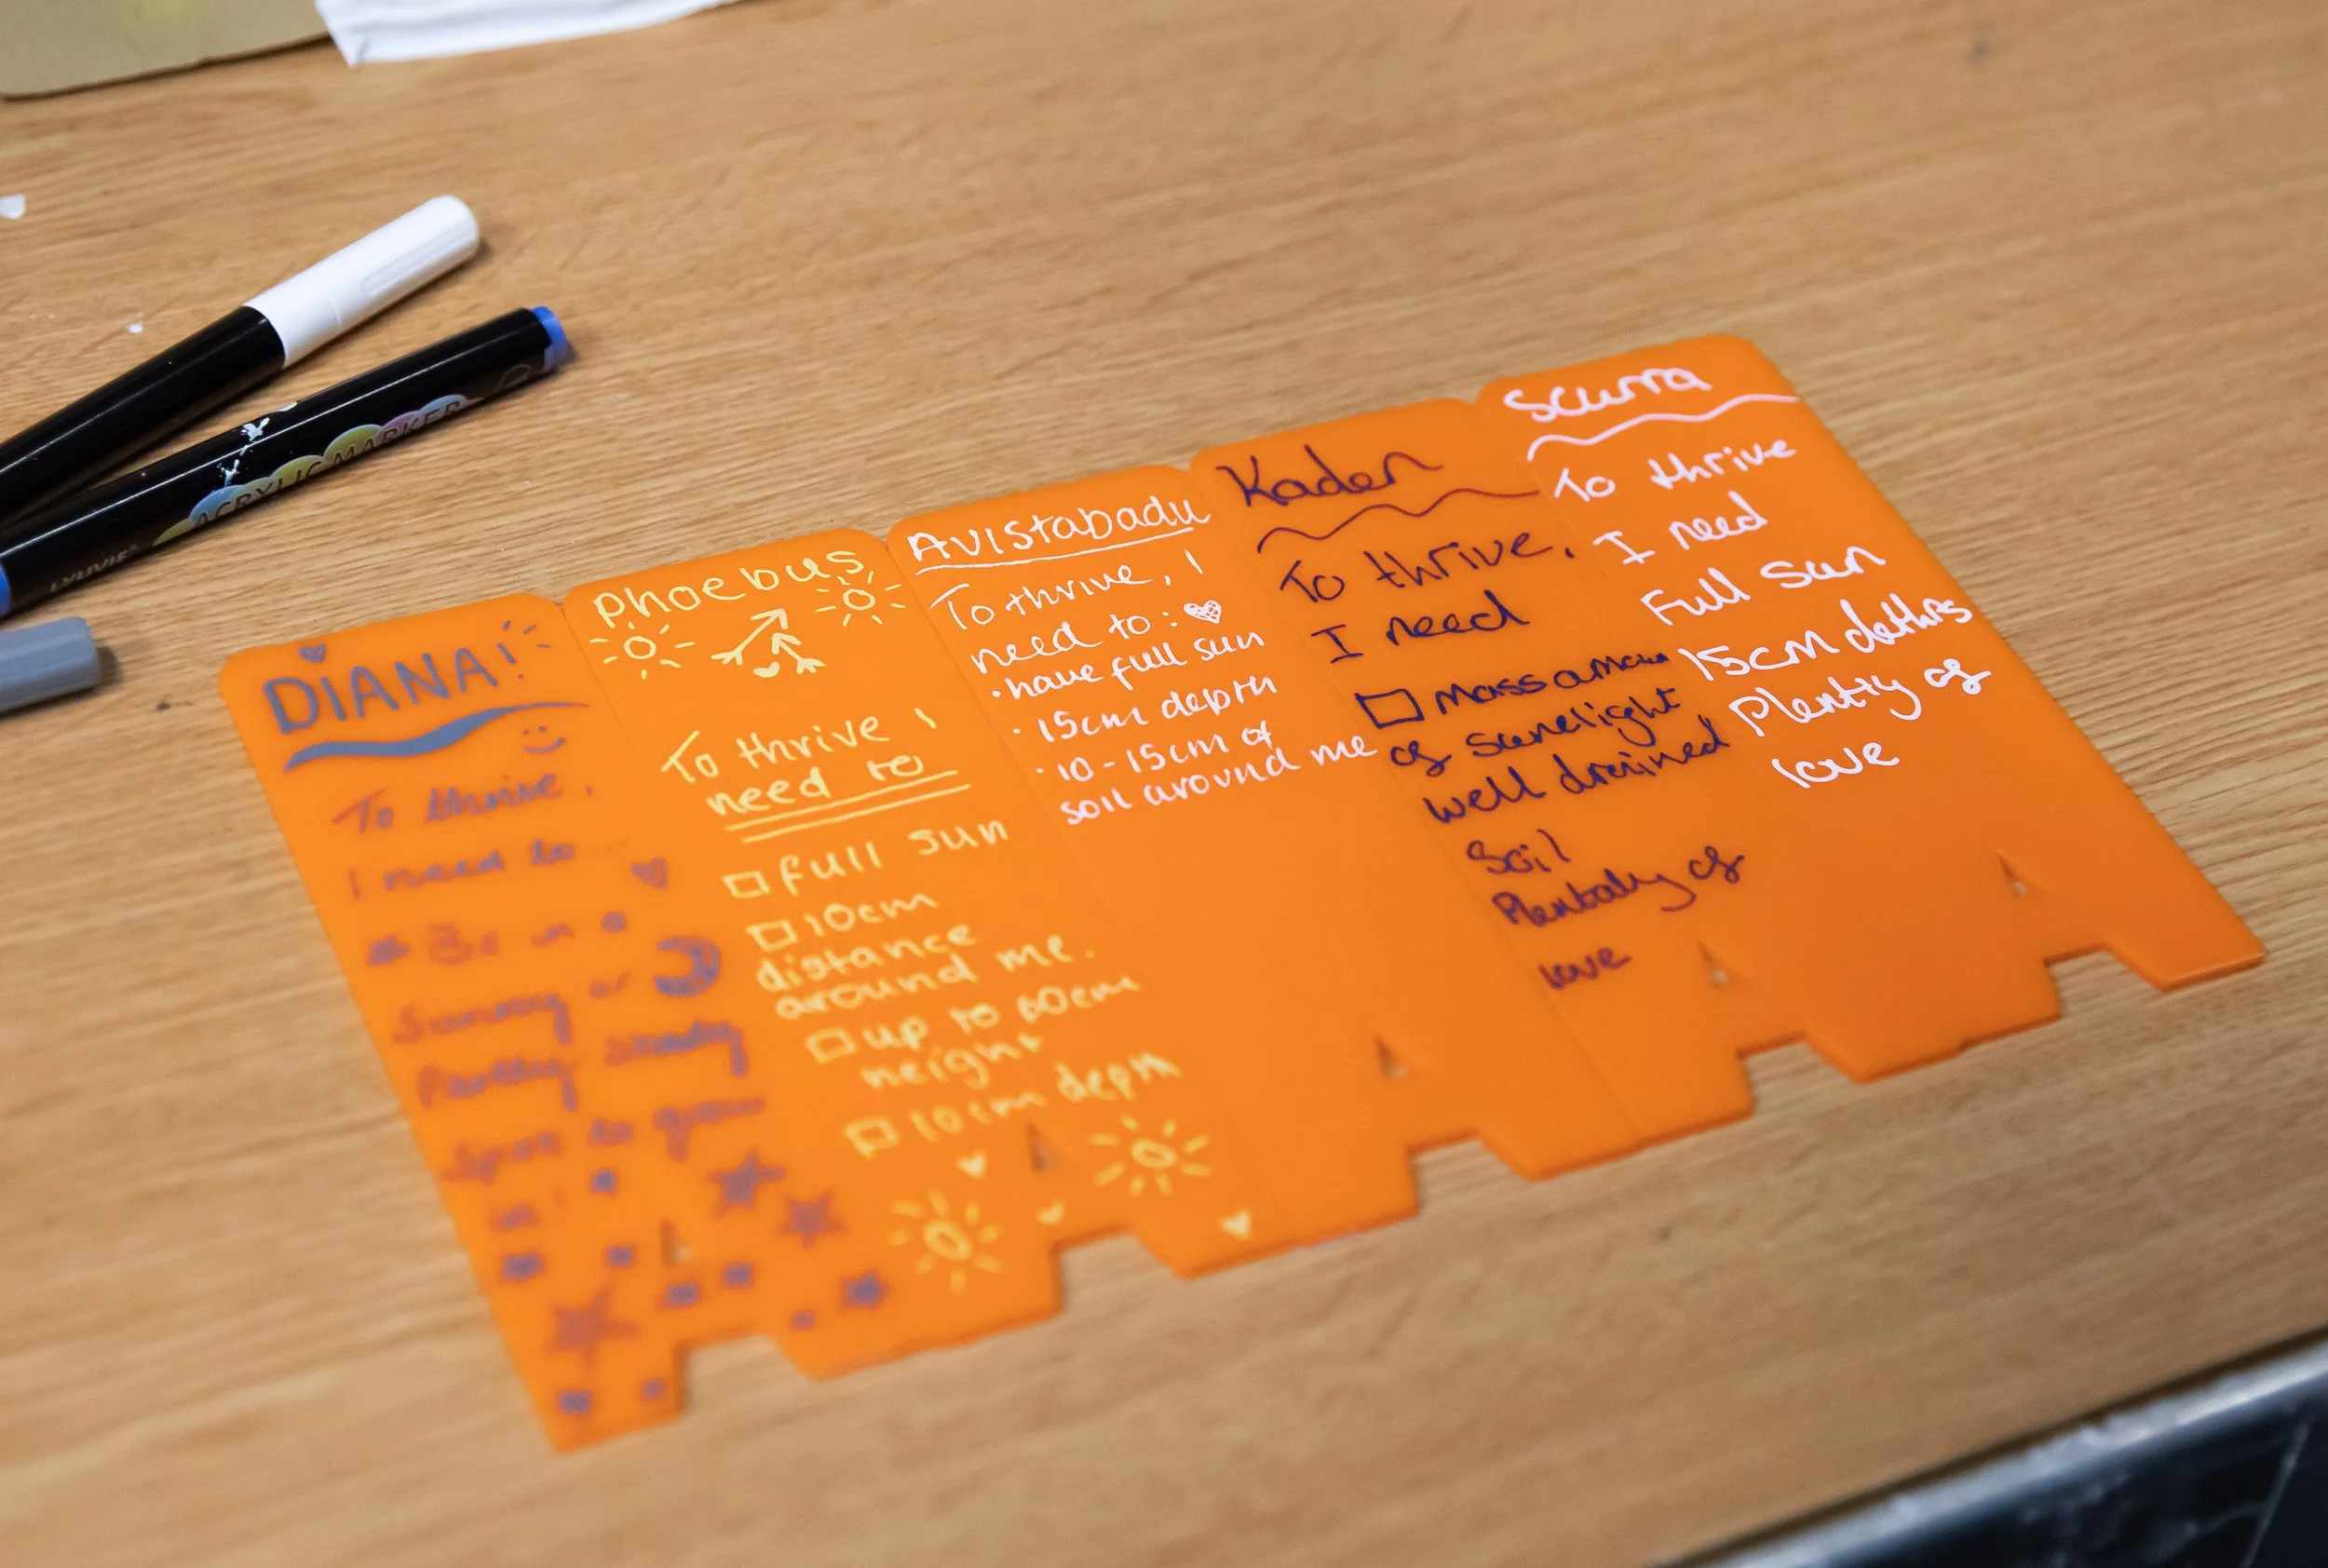 DIANA!
To thrive,
I need to...
Be in a
Sunny or
Partly shady
spot to grow
in!
Phoebus
To thrive I
need to
full sun
10cm
distance
around me.
up to 60cm
height
10cm depth
Avistabadu
To thrive, I
need to:
• have full sun
• 15cm depth
• 10-15cm of
soil around me
Kader
To thrive,
I need
mass amoun
of sunelight
well drained
Soil
Plentaly of
love
Scurra
To thrive
I need
Full Sun
15cm dethps
Plentiy of
love
ACRYLIC MARKER